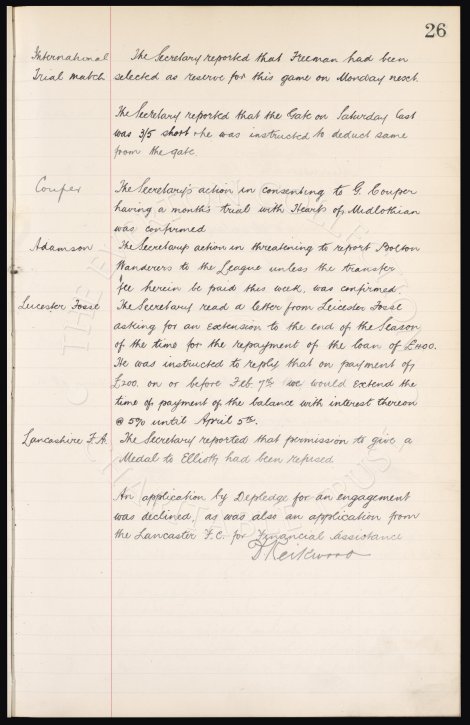 26
International The Secretary reported that Freeman had been
Trial Match selected as reserve for this game on Monday next.
The Secretary reported that the Gate on Saturday last
was 3/5 short & he was instructed to deduct same
from the gate.
Couper The Secretary's action in consenting to G. Couper
having a month's trial with Hearts of Midlothian
was confirmed
Adamson The Secretary's action in threatening to report Bolton
Wanderers to the League unless the transfer
fee herein be paid this week, was confirmed.
Leicester Fosse The Secretary read a letter from Leicester Fosse
asking for an extension to the end of the Season
of the time for the repayment of the loan of £400.
He was instructed to reply that on payment of
£200. on or before Feb 7th we would extend the
time of payment of the balance with interest thereon
@ 5% until April 5th.
Lancashire F.A. The Secretary reported that permission to give a
Medal to Elliott had been refused
An application by Depledge for an engagement
was declined, as was also an application from
the Lancaster F.C. for Financial Assistance
Kirkwood
THE EVERTON
CHARITABLE TRUST